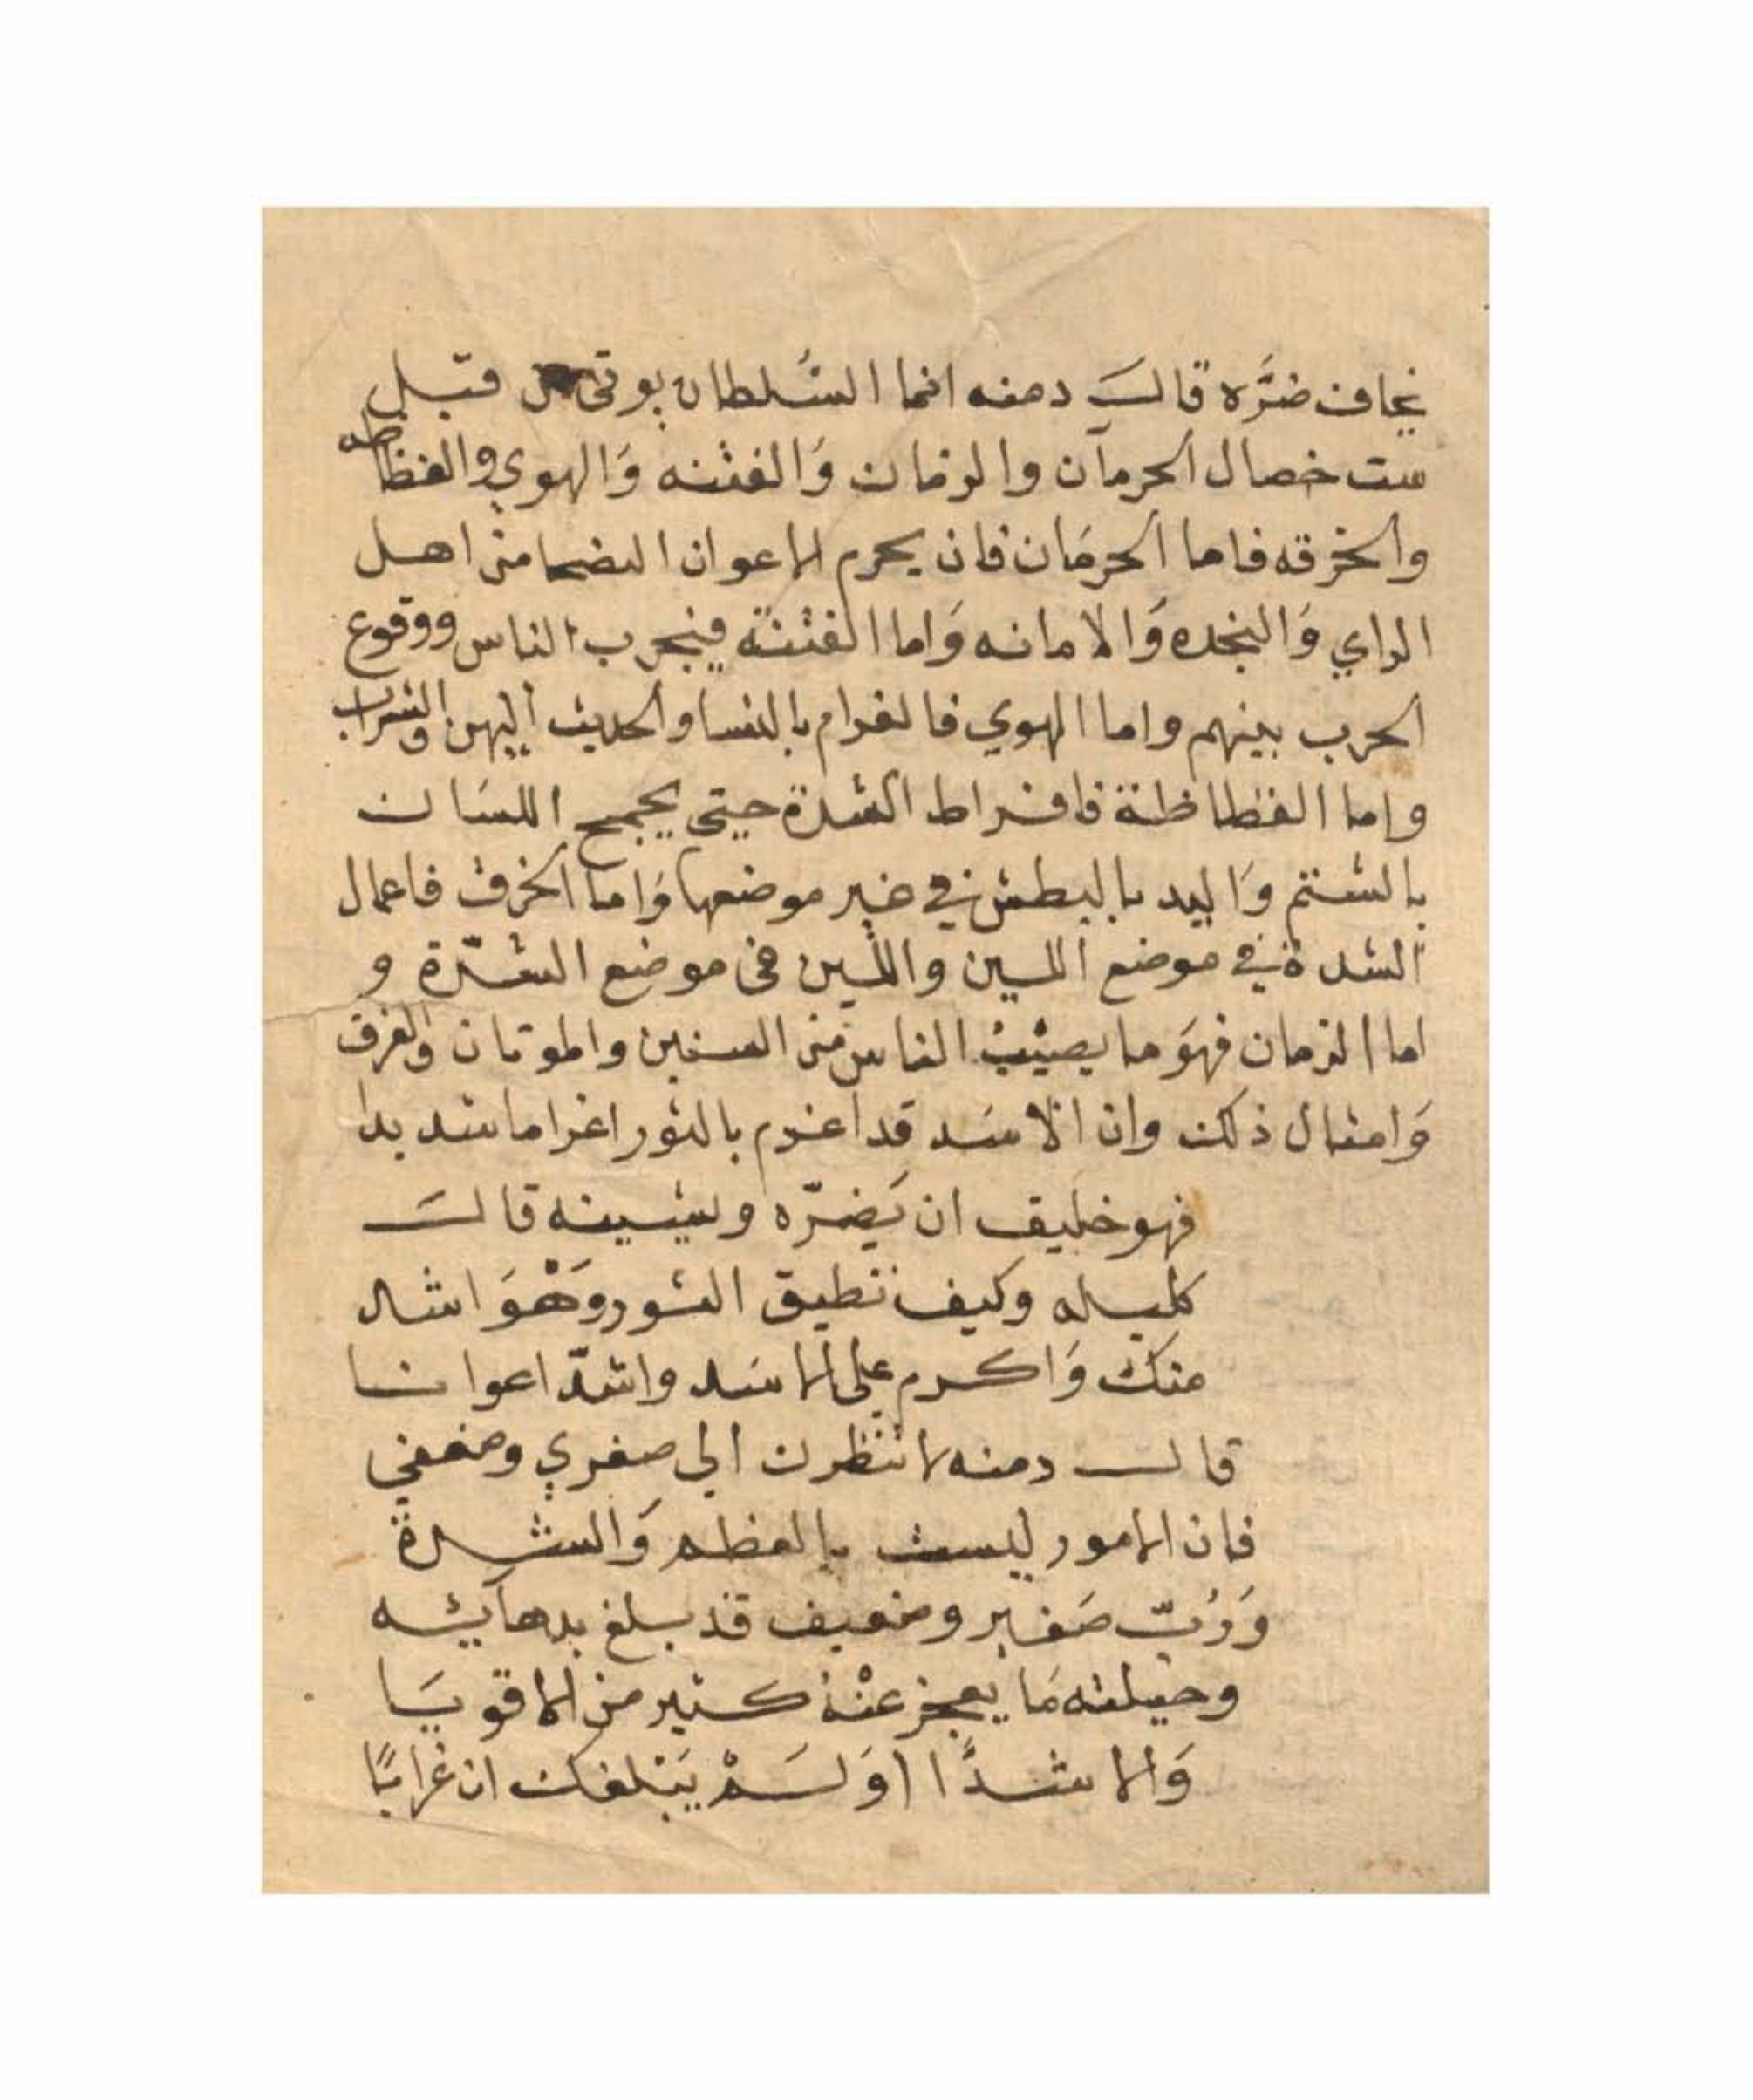 يخاف ضرَّه قالَـ دمنه انما السُلطان يوتى من قبل
ست خصال الحرمان والزمان وَالفتنه وَالهوي والفظاظه
والخرقه فاما الحرمَان فان يحرم الاعوان النصحا من اهل
الراي وَالنجده وَالامانه وَاما الفتنة فبتحرب الناس ووقوع
الحرب بينهم واما الهوي فالغرام بالنسا والحديث اليهن والشراب
واما الفظاظة فافراط الشدة حتى يجمح اللسَان
بالشتم وَاليد بالبطش في غير موضعها وَاما الخرق فاعمال
الشدة في موضع اللين واللين فى موضع الشدّة و
اما الزمان فهوَ ما يصيبُ الناس من السنين والموتان والغرق
وَامثال ذلك وان الاسَد قد اغرم بالثور اغراما شديدا
فهو خليق ان يَضرّه ويشينه قالَـ
كليله وكيف تطيق الثور وَهْوَ اشد
منك وَاكرم على الاسَد واشدّ اعوانا
قال دمنه لا تنظرن الى صغري وضعفي
فان الامور ليست بالعظم وَالشدة
وَرُبّ صَغير وضعيف قد بلغ بدهائه
وحيلته مَا يعجز عنْهُ كثير من الاقويَا
وَالاشدَّا اوَ لَمْ يَبْلغك ان غرابًا